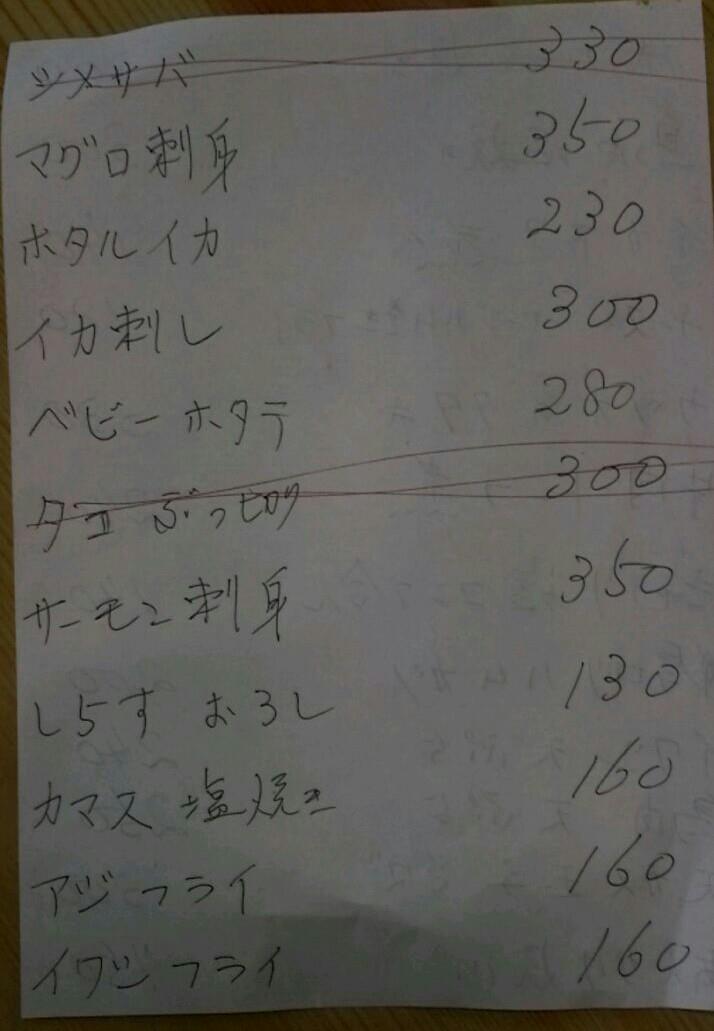 シメサバ 330
マグロ刺身 350
ホタルイカ 230
イカ刺し 300
ベビーホタテ 280
タコ ぶつ切り 300
サーモン刺身 350
しらす おろし 130
カマス 塩焼き 160
アジフライ 160
イワシフライ 160